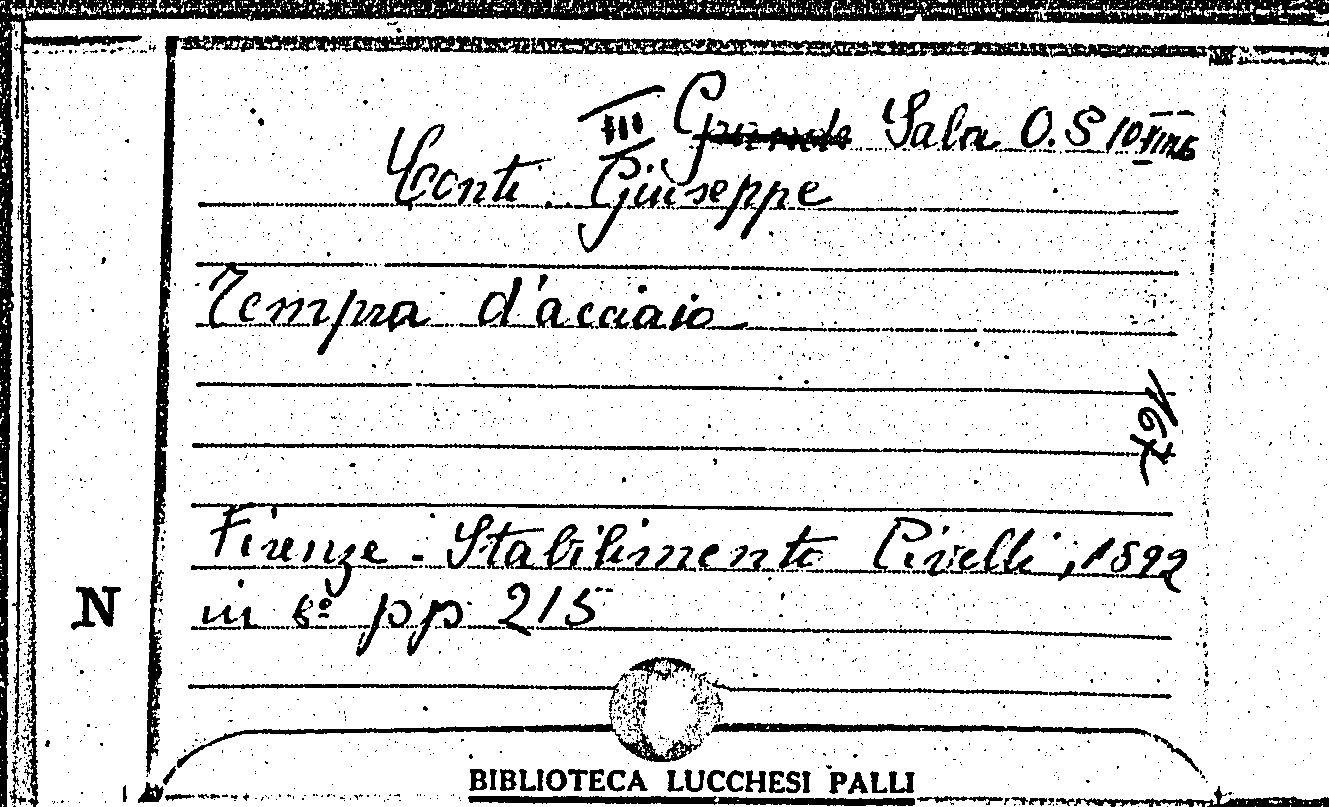 III Grande Sala O. S 10
Conti Giuseppe
Tempra d'acciaio
167
Firenze - Stabilimento Civelli, 1892
in 8º pp 215
N
BIBLIOTECA LUCCHESI PALLI